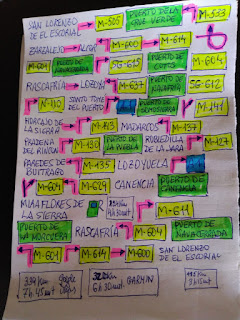 SAN LORENZO DE EL ESCORIAL M-505 PUERTO DE LA CRUZ VERDE M-533
ZARZALEJO M-600 M-614
M-604 PUERTO DE NAVACERRADA SG-615 PUERTO DE COTOS M-604
RASCAFRÍA LOZOYA M-637 PUERTO DE NAVAFRÍA SG-612
N-110 SANTO TOMÉ DEL PUERTO PUERTO DE SOMOSIERRA M-141
HORCAJO DE LA SIERRA M-143 MADARCOS M-137
PRÁDENA DEL RINCÓN M-130 PUERTO DE LA PUEBLA ROBLEDILLO DE LA JARA M-127
PAREDES DE BUITRAGO M-135 LOZOYUELA
M-604 M-629 CANENCIA PUERTO DE CANENCIA
MIRAFLORES DE LA SIERRA M-611
PUERTO DE LA MORCUERA RASCAFRÍA M-604 PUERTO DE NAVACERRADA
M-601 M-614 M-600 SAN LORENZO DE EL ESCORIAL
339 KM GOOGLE MAPS
7h 45 mnt
GARMIN
6h 30 mnt